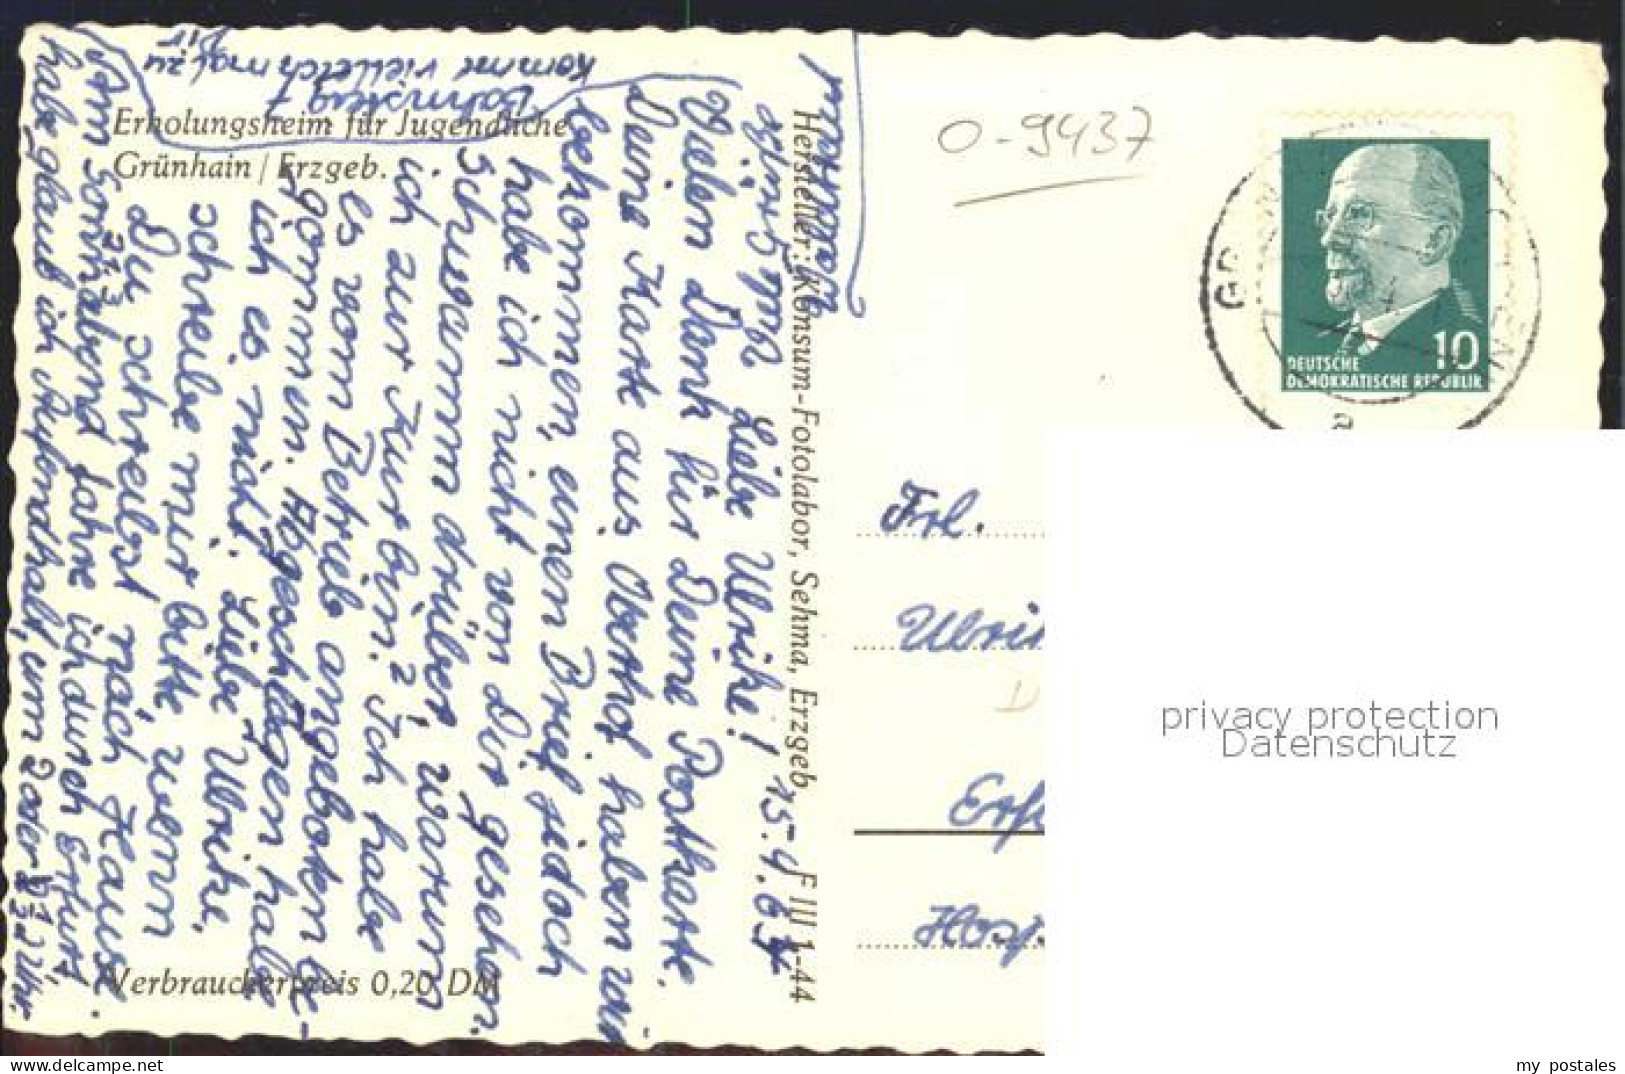 Erholungsheim für Jugendliche
Grünhain / Erzgeb.
Verbraucherpreis 0,20 DM
Hersteller: Konsum-Fotolabor, Sehma, Erzgeb. F III 1-44
Liebe Ulrike! 15.4.64
Vielen Dank für Deine Postkarte.
Deine Karte aus Oberhof haben wir
bekommen, einen Brief jedoch
habe ich nicht von Dir gesehen.
Schusamm drüber, warum
ich zur Kur bin? Ich habe
es vom Betrieb angeboten be-
kommen. Abgeschlagen habe
ich es nicht. Liebe Ulrike,
schreibe mir bitte, wenn
Du schreibst nach Hause.
Am Sonnabend fahre ich durch Erfurt,
habe glaub ich Aufendhalt, um 2 oder 1/2 3 Uhr.
komm vielleicht mal zu
mir
Bahnsteig
O-9437
DEUTSCHE
DEMOKRATISCHE REPUBLIK
10
a
Frl.
Ulri
Erf
Hosp
privacy protection
Datenschutz
www.delcampe.net
my_postales